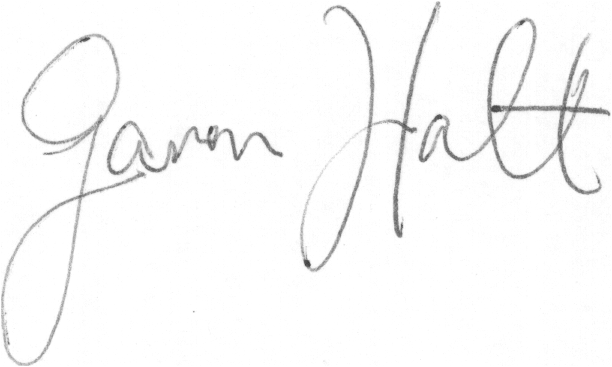 Garon Hatt